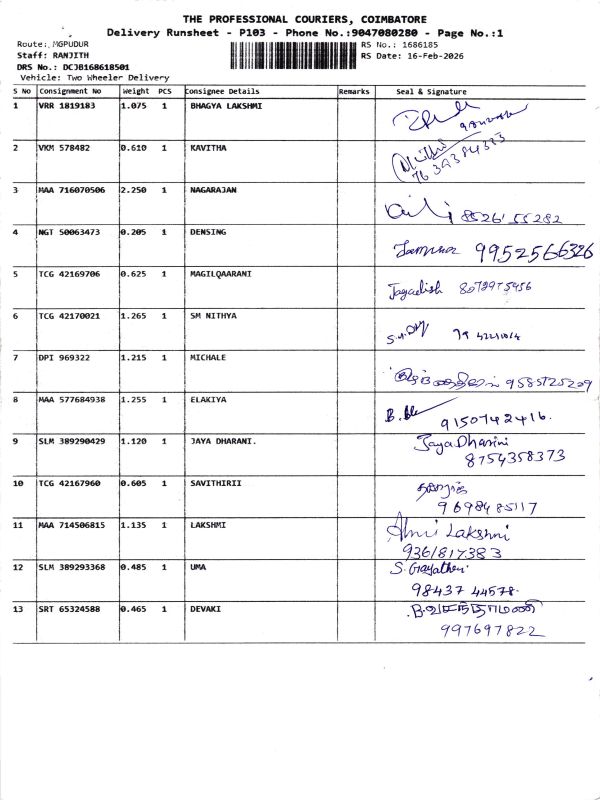 THE PROFESSIONAL COURIERS, COIMBATORE
Delivery Runsheet - P103 - Phone No.:9047080280 - Page No.:1
Route: MGPUDUR RS No.: 1686185
Staff: RANJITH RS Date: 16-Feb-2026
DRS No.: DCJB168618501
Vehicle: Two Wheeler Delivery
S No Consignment No Weight PCS Consignee Details Remarks Seal & Signature
1 VRR 1819183 1.075 1 BHAGYA LAKSHMI
2 VKM 578482 0.610 1 KAVITHA
7639384383
3 MAA 716070506 2.250 1 NAGARAJAN
8526155282
4 NGT 50063473 0.205 1 DENSING
9952566326
5 TCG 42169706 0.625 1 MAGILQAARANI
Jagadish 8072975956
6 TCG 42170021 1.265 1 SM NITHYA
7 DPI 969322 1.215 1 MICHALE
9585725209
8 MAA 577684938 1.255 1 ELAKIYA
9150742416.
9 SLM 389290429 1.120 1 JAYA DHARANI.
Jaya Dharini
8754358373
10 TCG 42167960 0.605 1 SAVITHIRII
9698485117
11 MAA 714506815 1.135 1 LAKSHMI
Lakshmi
9361817383
12 SLM 389293368 0.485 1 UMA
S. Gayathri
98437 44578.
13 SRT 65324588 0.465 1 DEVAKI
B.வசந்தாமணி
997697822